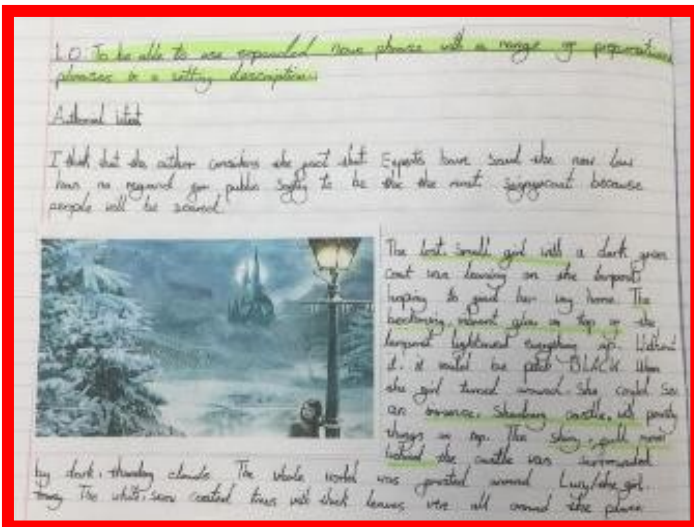 L.O: To be able to use expanded noun phrase with a range of preposition
phrases in a setting description.
Authorial intent
I think that the author considers the fact that Experts have said the new law
has no regard for public safty to be the the most because
people will be scared.
The lost, small girl with a dark green
coat was leaning on the lampost
hoping to find her way home. The
glow on top of the
lampost everything up. Without
it, it would be BLACK. When
she girl turned around. She could see
an immense, castle, with pointy
things on top. The shiny, full moon
behind the castle was surrounded
by dark, clouds. The whole world was around Lucy/the girl.
The white, snow coated trees with thick leaves were all around the place